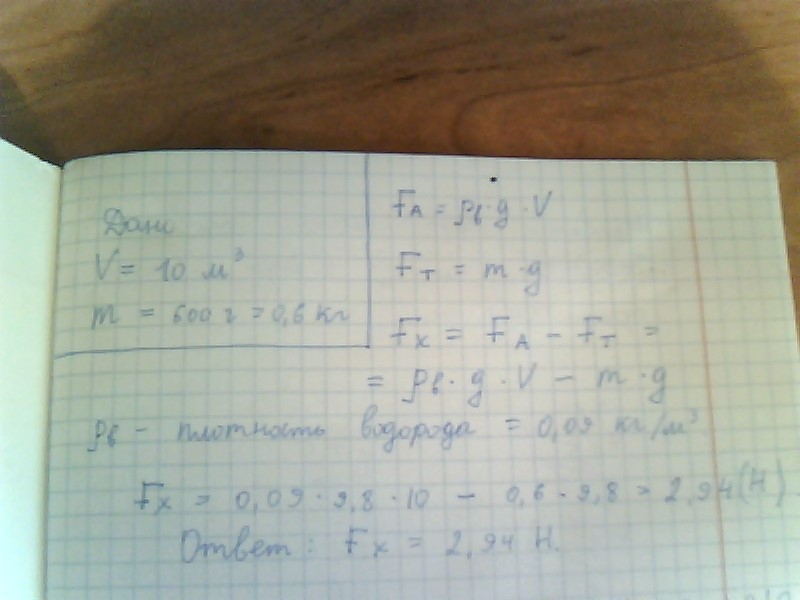 Дано
V = 10 м³
m = 600 г = 0,6 кг
FА = ρв·g·V
Fт = m·g
Fх = FА - Fт =
= ρв·g·V - m·g
ρв - плотность водорода = 0,09 кг/м³
Fх = 0,09·9,8·10 - 0,6·9,8 = 2,94 (Н)
Ответ: Fх = 2,94 Н.